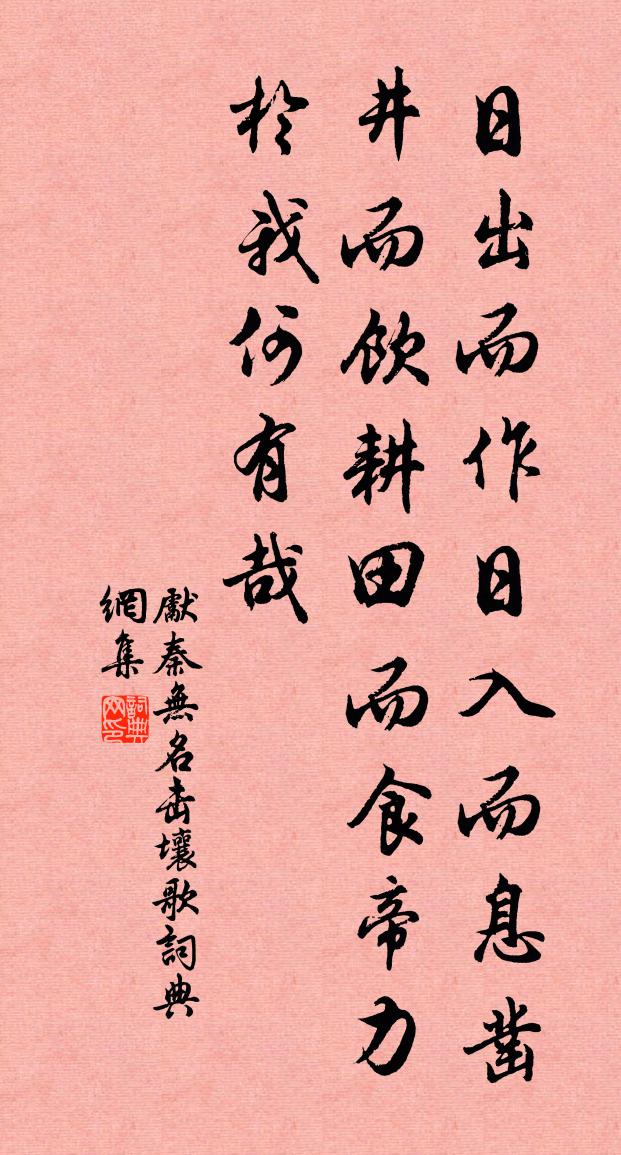 日出而作日入而息凿
井而飲耕田而食帝力
於我何有哉
獻秦無名击壤歌詞典
網集
詞典
网印